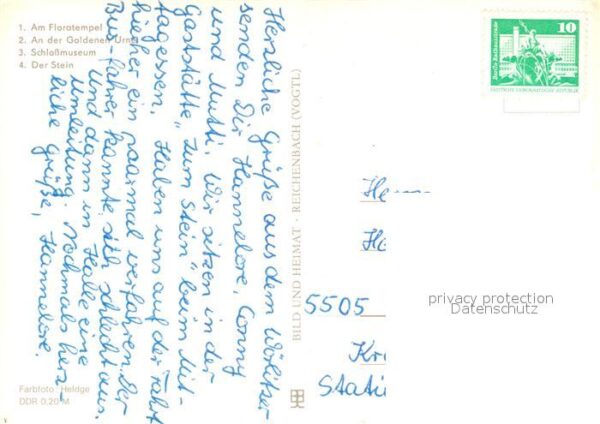 1. Am Floratempel
2. An der Goldenen Urne
3. Schloßmuseum
4. Der Stein
Herzliche Grüße aus dem Wörlitzer
senden Dir Hannelore, Conny
und Mutti. Wir sitzen in der
Gaststätte "Zum Stein" beim Mit-
tagessen. Haben uns auf der Fahrt
hierher ein paarmal verfahren. Der
Busfahrer kannte sich schlecht aus.
Und dann in Halle eine
Umleitung. Nochmals herz-
liche Grüße, Hannelore.
Farbfoto: Heldge
DDR 0,20 M
BILD UND HEIMAT · REICHENBACH (VOGTL)
10
Berlin-Rathausstraße
DEUTSCHE DEMOKRATISCHE REPUBLIK
Herrn
5505
privacy protection
Datenschutz